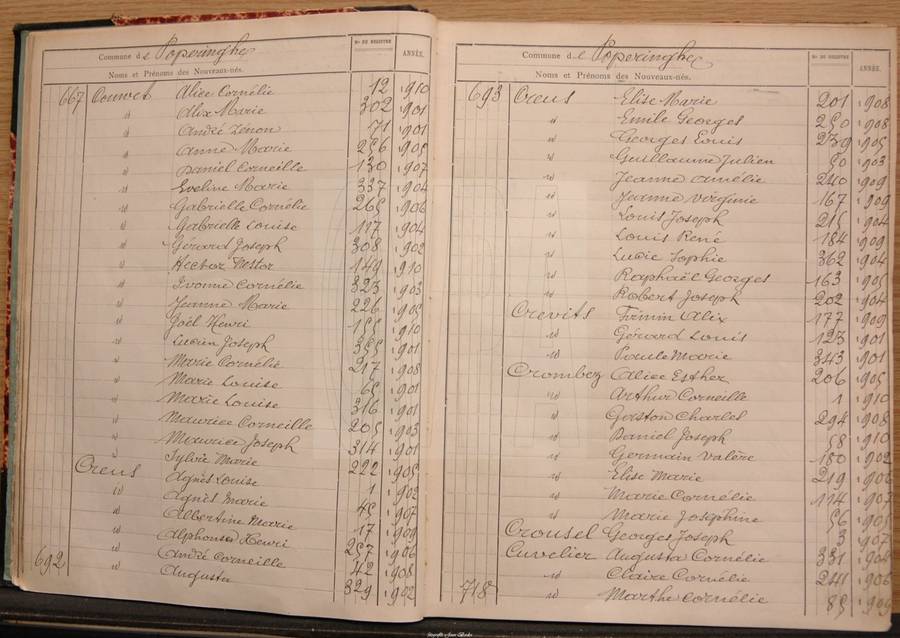 Commune de Poperinghe
Nos DU REGISTRE
ANNÉE.
Noms et Prénoms des Nouveaux-nés.
667 Couwet Alice Cornélie 12 1910
id Alix Marie 302 1901
id André Zénon 71 1901
id Anne Marie 256 1905
id Daniel Corneille 130 1907
id Eveline Marie 337 1904
id Gabrielle Cornélie 265 1906
id Gabrielle Louise 1904
id Gérard Joseph 308 1902
id Hector Nestor 149 1910
id Ivonne Cornélie 323 1903
id Jeanne Marie 226 1905
id Joël Henri 155 1910
id Lucien Joseph 355 1901
id Marie Cornélie 217 1908
id Marie Louise 65 1901
id Marie Louise 316 1901
id Maurice Corneille 205 1903
id Maurice Joseph 314 1901
id Sylvie Marie 222 1905
Creus Agnès Louise 1 1902
id Agnès Marie 45 1907
id Albertine Marie 17 1909
id Alphonse Henri 257 1906
id André Corneille 42 1908
692 id Augusta 329 1902
Commune de Poperinghe
Nos DU REGISTRE
ANNÉE.
Noms et Prénoms des Nouveaux-nés.
693 Creus Elise Marie 201 1908
id Emile Georges 250 1908
id Georges Louis 239 1905
id Guillaume Julien 50 1903
id Jeanne Amélie 240 1909
id Jeanne Virginie 167 1909
id Louis Joseph 215 1904
id Louis René 184 1909
id Lucie Sophie 362 1904
id Raphaël Georges 163 1905
id Robert Joseph 202 1904
Crevits Firmin Alix 177 1909
id Gérard Louis 123 1901
id Paule Marie 343 1901
Crombez Alice Esther 206 1905
id Arthur Corneille 1 1910
id Gaston Charles 294 1908
id Daniel Joseph 58 1910
id Germain Valère 180 1902
id Elise Marie 219 1906
id Marie Cornélie 114 1907
id Marie Joséphine 56 1905
Crousel Georges Joseph 3 1907
Cuvelier Augusta Cornélie 331 1904
id Claire Cornélie 241 1906
718 id Marthe Cornélie 85 1909